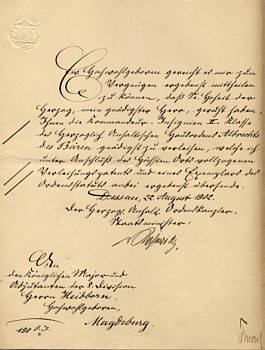 Ew. Hochwohlgeboren gereicht es mir zum
Vergnügen ergebenst mittheilen
zu können, daß Se. Hoheit der
Herzog, mein gnädigster Herr, geruht haben,
Ihnen die Kommandeur-Insignien II. Klasse
des Herzoglich Anhaltischen Hausordens Albrechts
des Bären gnädigst zu verleihen, welche ich
unter Anschluß des Höchsten Orts vollzogenen
Verleihungspatents und eines Exemplars des
Ordensstatuts anbei ergebenst übersende.
Dessau, 22. August 1902.
Der Herzogl. Anhalt. Ordenskanzler,
Staatsminister
An
den Königlichen Major und
Adjutanten der 8. Division
Herrn Heidborn,
Hochwohlgeboren,
Magdeburg.
180